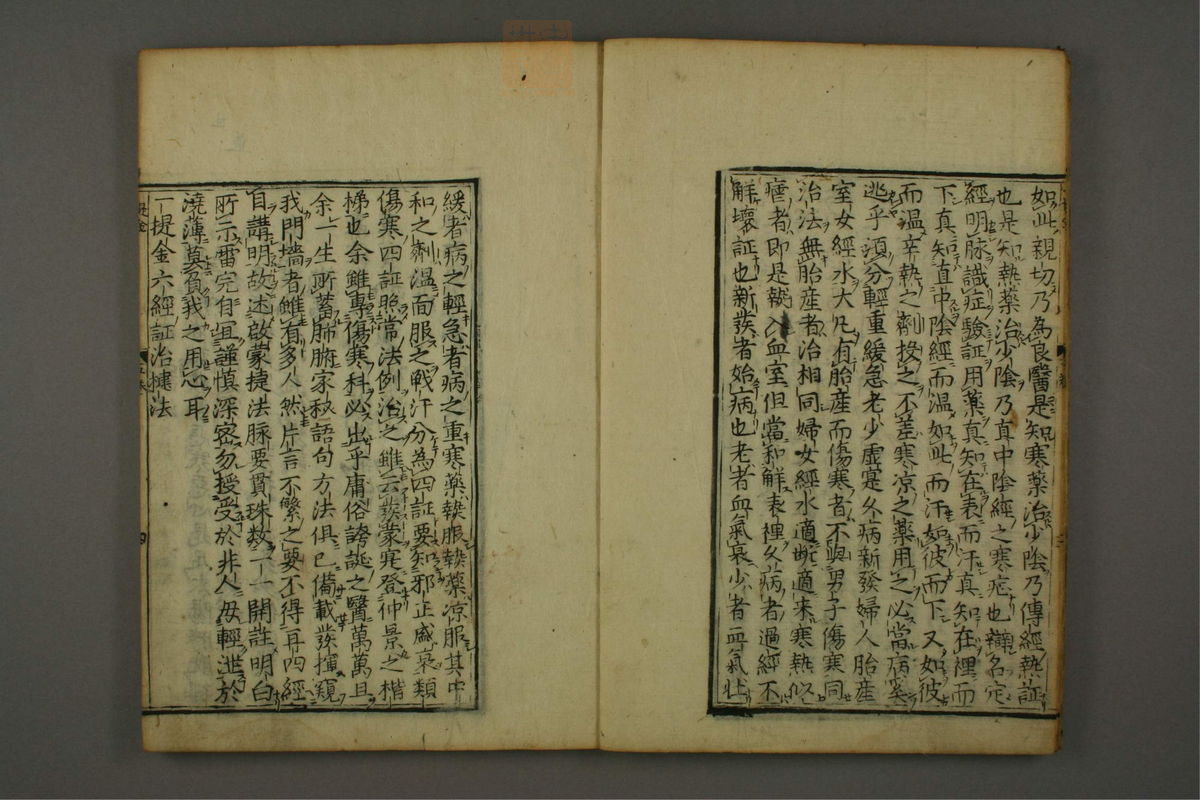 如此親切乃為良醫是知寒薬治少陰乃傳經熱証
也是知熱薬治少陰乃直中陰經之寒症也辯名定
經明脉識症驗証用薬真知在表而汗真知在裡而
下真知直中陰經而温如此而汗如彼而下又如彼
而温辛熱之劑投之不差寒凉之薬用之必當病奚
逃乎須分輕重緩急老少虚寔久病新發婦人胎産
室女經水大凡有胎産而傷寒者不與男子傷寒同
治法無胎産者治相同婦女經水適断適来寒熱似
瘧者即是熱入血室但當和解表裡久病者過經不
解壊証也新發者始病也老者血氣衰少者血氣壮
緩者病之輕急者病之重寒薬熱服熱薬凉服其中
和之劑温而服之戦汗分為四証要知邪正盛衰類
傷寒四証照常法例治之雖云發蒙寔登仲景之梯
梯也余雖專傷寒科必出乎庸俗誇誕之醫萬萬且
余一生所蓄肺腑家秘語句方法俱已備載發揮窺
我門墻者雖有多人然片言不繁之要不得耳四經
自講明故述啟蒙捷法脉要貫珠数一一開註明白
所示雷完自宜謹慎深密勿授受於非人毋輕泄於
澆薄莫負我之用心耳
一提金六經証治捷法